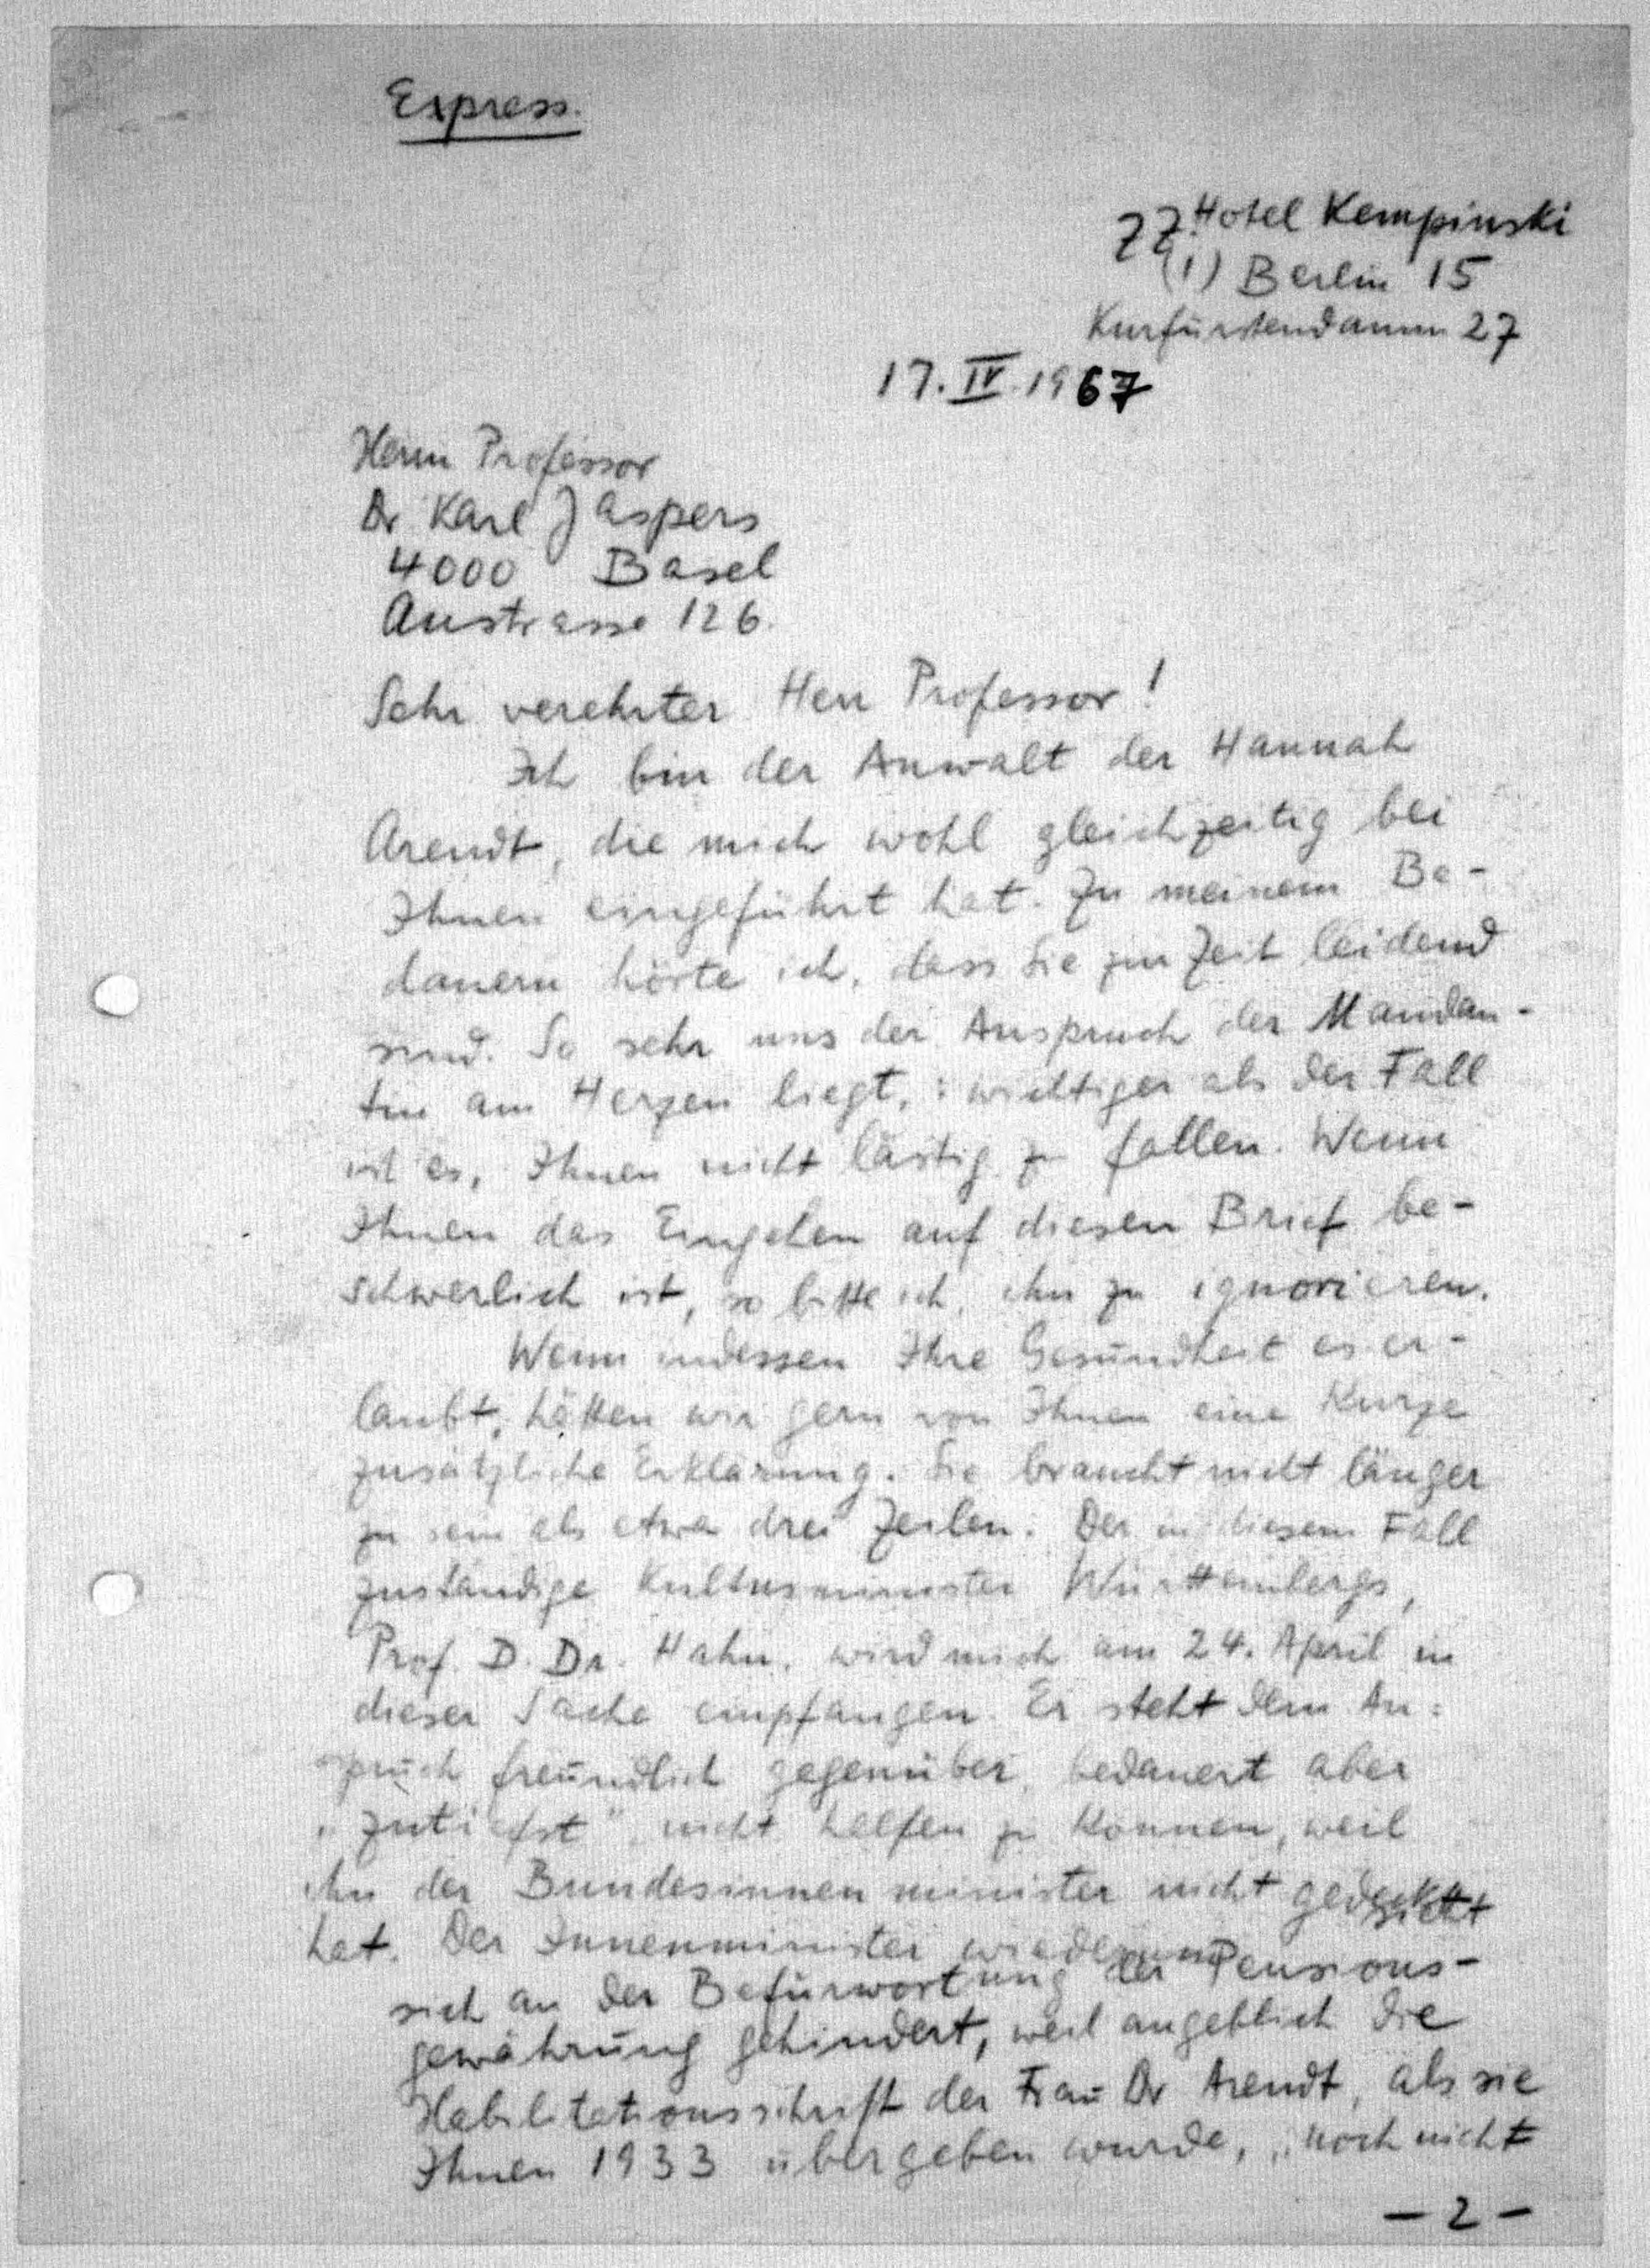 Express.
ZZ. Hotel Kempinski
(1) Berlin 15
Kurfürstendamm 27
17. IV. 1967
Herrn Professor
Dr Karl Jaspers
4000 Basel
Austrasse 126.
Sehr verehrter Herr Professor!
Ich bin der Anwalt der Hannah
Arendt, die mich wohl gleichzeitig bei
Ihnen eingeführt hat. Zu meinem Be-
dauern hörte ich, dass Sie zur Zeit leidend
sind. So sehr uns der Anspruch der Mandan-
tin am Herzen liegt,: wichtiger als der Fall
ist es, Ihnen nicht lästig zu fallen. Wenn
Ihnen das Eingehen auf diesen Brief be-
schwerlich ist, so bitte ich, ihn zu ignorieren.
Wenn indessen Ihre Gesundheit es er-
laubt, hätten wir gern von Ihnen eine kurze
zusätzliche Erklärung. Sie braucht nicht länger
zu sein als etwa drei Zeilen. Der in diesem Fall
zuständige Kultusminister Württembergs,
Prof. D. Dr. Hahn, wird mich am 24. April in
dieser Sache empfangen. Er steht dem An=
spruch freundlich gegenüber, bedauert aber
„zutiefst" nicht helfen zu können, weil
ihn der Bundesinnenminister nicht gedeckt
hat. Der Innenminister wiederum sieht
sich an der Befürwortung der Pensions-
gewährung gehindert, weil angeblich die
Habilitationsschrift der Frau Dr Arendt, als sie
Ihnen 1933 übergeben wurde, „noch nicht
- 2 -